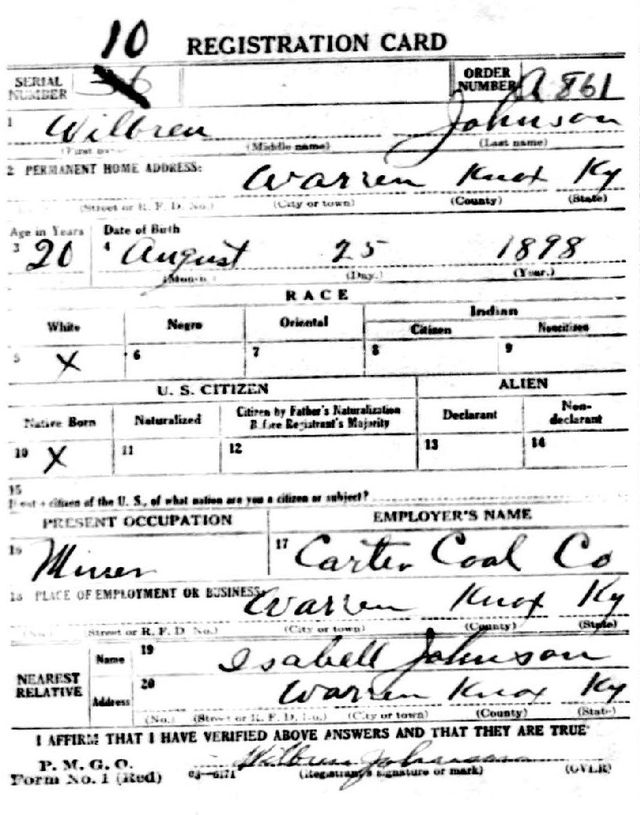 10 REGISTRATION CARD
SERIAL NUMBER 36 ORDER NUMBER A 861
1 Wilbren Johnson
(First name) (Middle name) (Last name)
2 PERMANENT HOME ADDRESS: Warren Knox Ky
(Street or R. F. D. No.) (City or town) (County) (State)
Age in Years Date of Birth
3 20 4 August 25 1898
(Month) (Day.) (Year.)
RACE
White Negro Oriental Indian
Citizen Noncitizen
5 X 6 7 8 9
U. S. CITIZEN ALIEN
Native Born Naturalized Citizen by Father's Naturalization Before Registrant's Majority Declarant Non-declarant
10 X 11 12 13 14
15
If not a citizen of the U. S., of what nation are you a citizen or subject?
PRESENT OCCUPATION EMPLOYER'S NAME
16 Miner 17 Carter Coal Co
18 PLACE OF EMPLOYMENT OR BUSINESS: Warren Knox Ky
(No.) (Street or R. F. D. No.) (City or town) (County) (State)
NEAREST RELATIVE Name 19 Isabell Johnson
Address 20 Warren Knox Ky
(No.) (Street or R. F. D. No.) (City or town) (County) (State)
I AFFIRM THAT I HAVE VERIFIED ABOVE ANSWERS AND THAT THEY ARE TRUE
P. M. G. O. Wilbren Johnson
Form No. 1 (Red) 03—6171 (Registrant's signature or mark) (OVER)